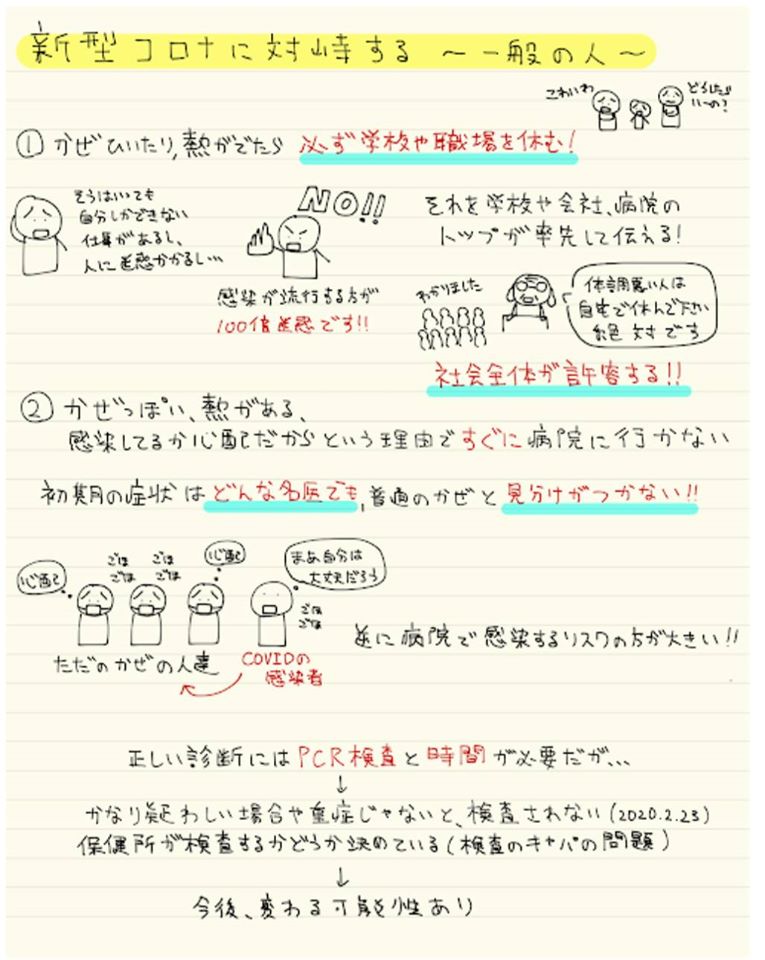 新型コロナに対峙する ～一般の人～
これいわ
どうしたら
いーの？
① かぜひいたり、熱がでたら 必ず学校や職場を休む！
そうはいても
自分しかできない
仕事があるし、
人に迷惑かかるし…
NO!!
感染が流行する方が
100倍迷惑です!!
それを学校や会社、病院の
トップが率先して伝える！
わかりました
体調悪い人は
自宅で休んで下さい
絶対です
社会全体が許容する!!
② かぜっぽい、熱がある、
感染してるか心配だからという理由ですぐに病院に行かない
初期の症状はどんな名医でも、普通のかぜと見分けがつかない!!
心配
ごほ
ごほ
ごほ
ごほ
心配
まあ自分は
大丈夫だろう
ごほ
ごほ
ただのかぜの人達
COVIDの
感染者
逆に病院で感染するリスクの方が大きい!!
正しい診断にはPCR検査と時間が必要だが…
↓
かなり疑わしい場合や重症じゃないと、検査されない(2020.2.23)
保健所が検査するかどうか決めている(検査のキャパの問題)
↓
今後、変わる可能性あり